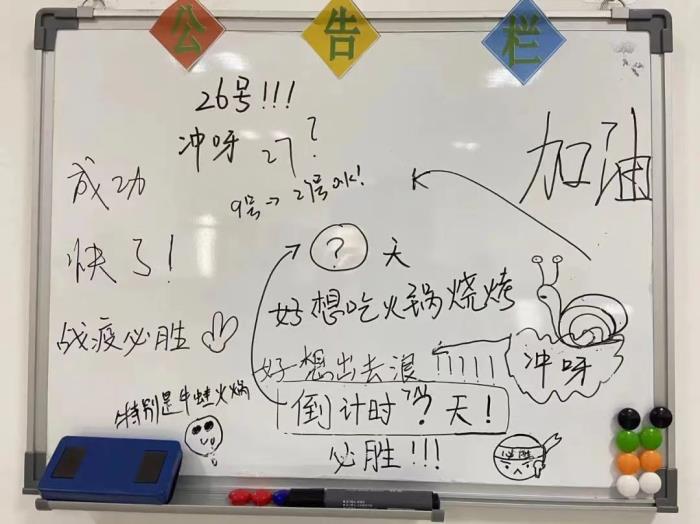 公告栏
26号!!!
冲呀 27?
9号→29号OK!
加油
成功
快了!
战疫必胜
? 天
好想吃火锅烧烤
好想出去浪!!!!!
冲呀
特别是牛蛙火锅
倒计时"?"天!
必胜!!!
必胜